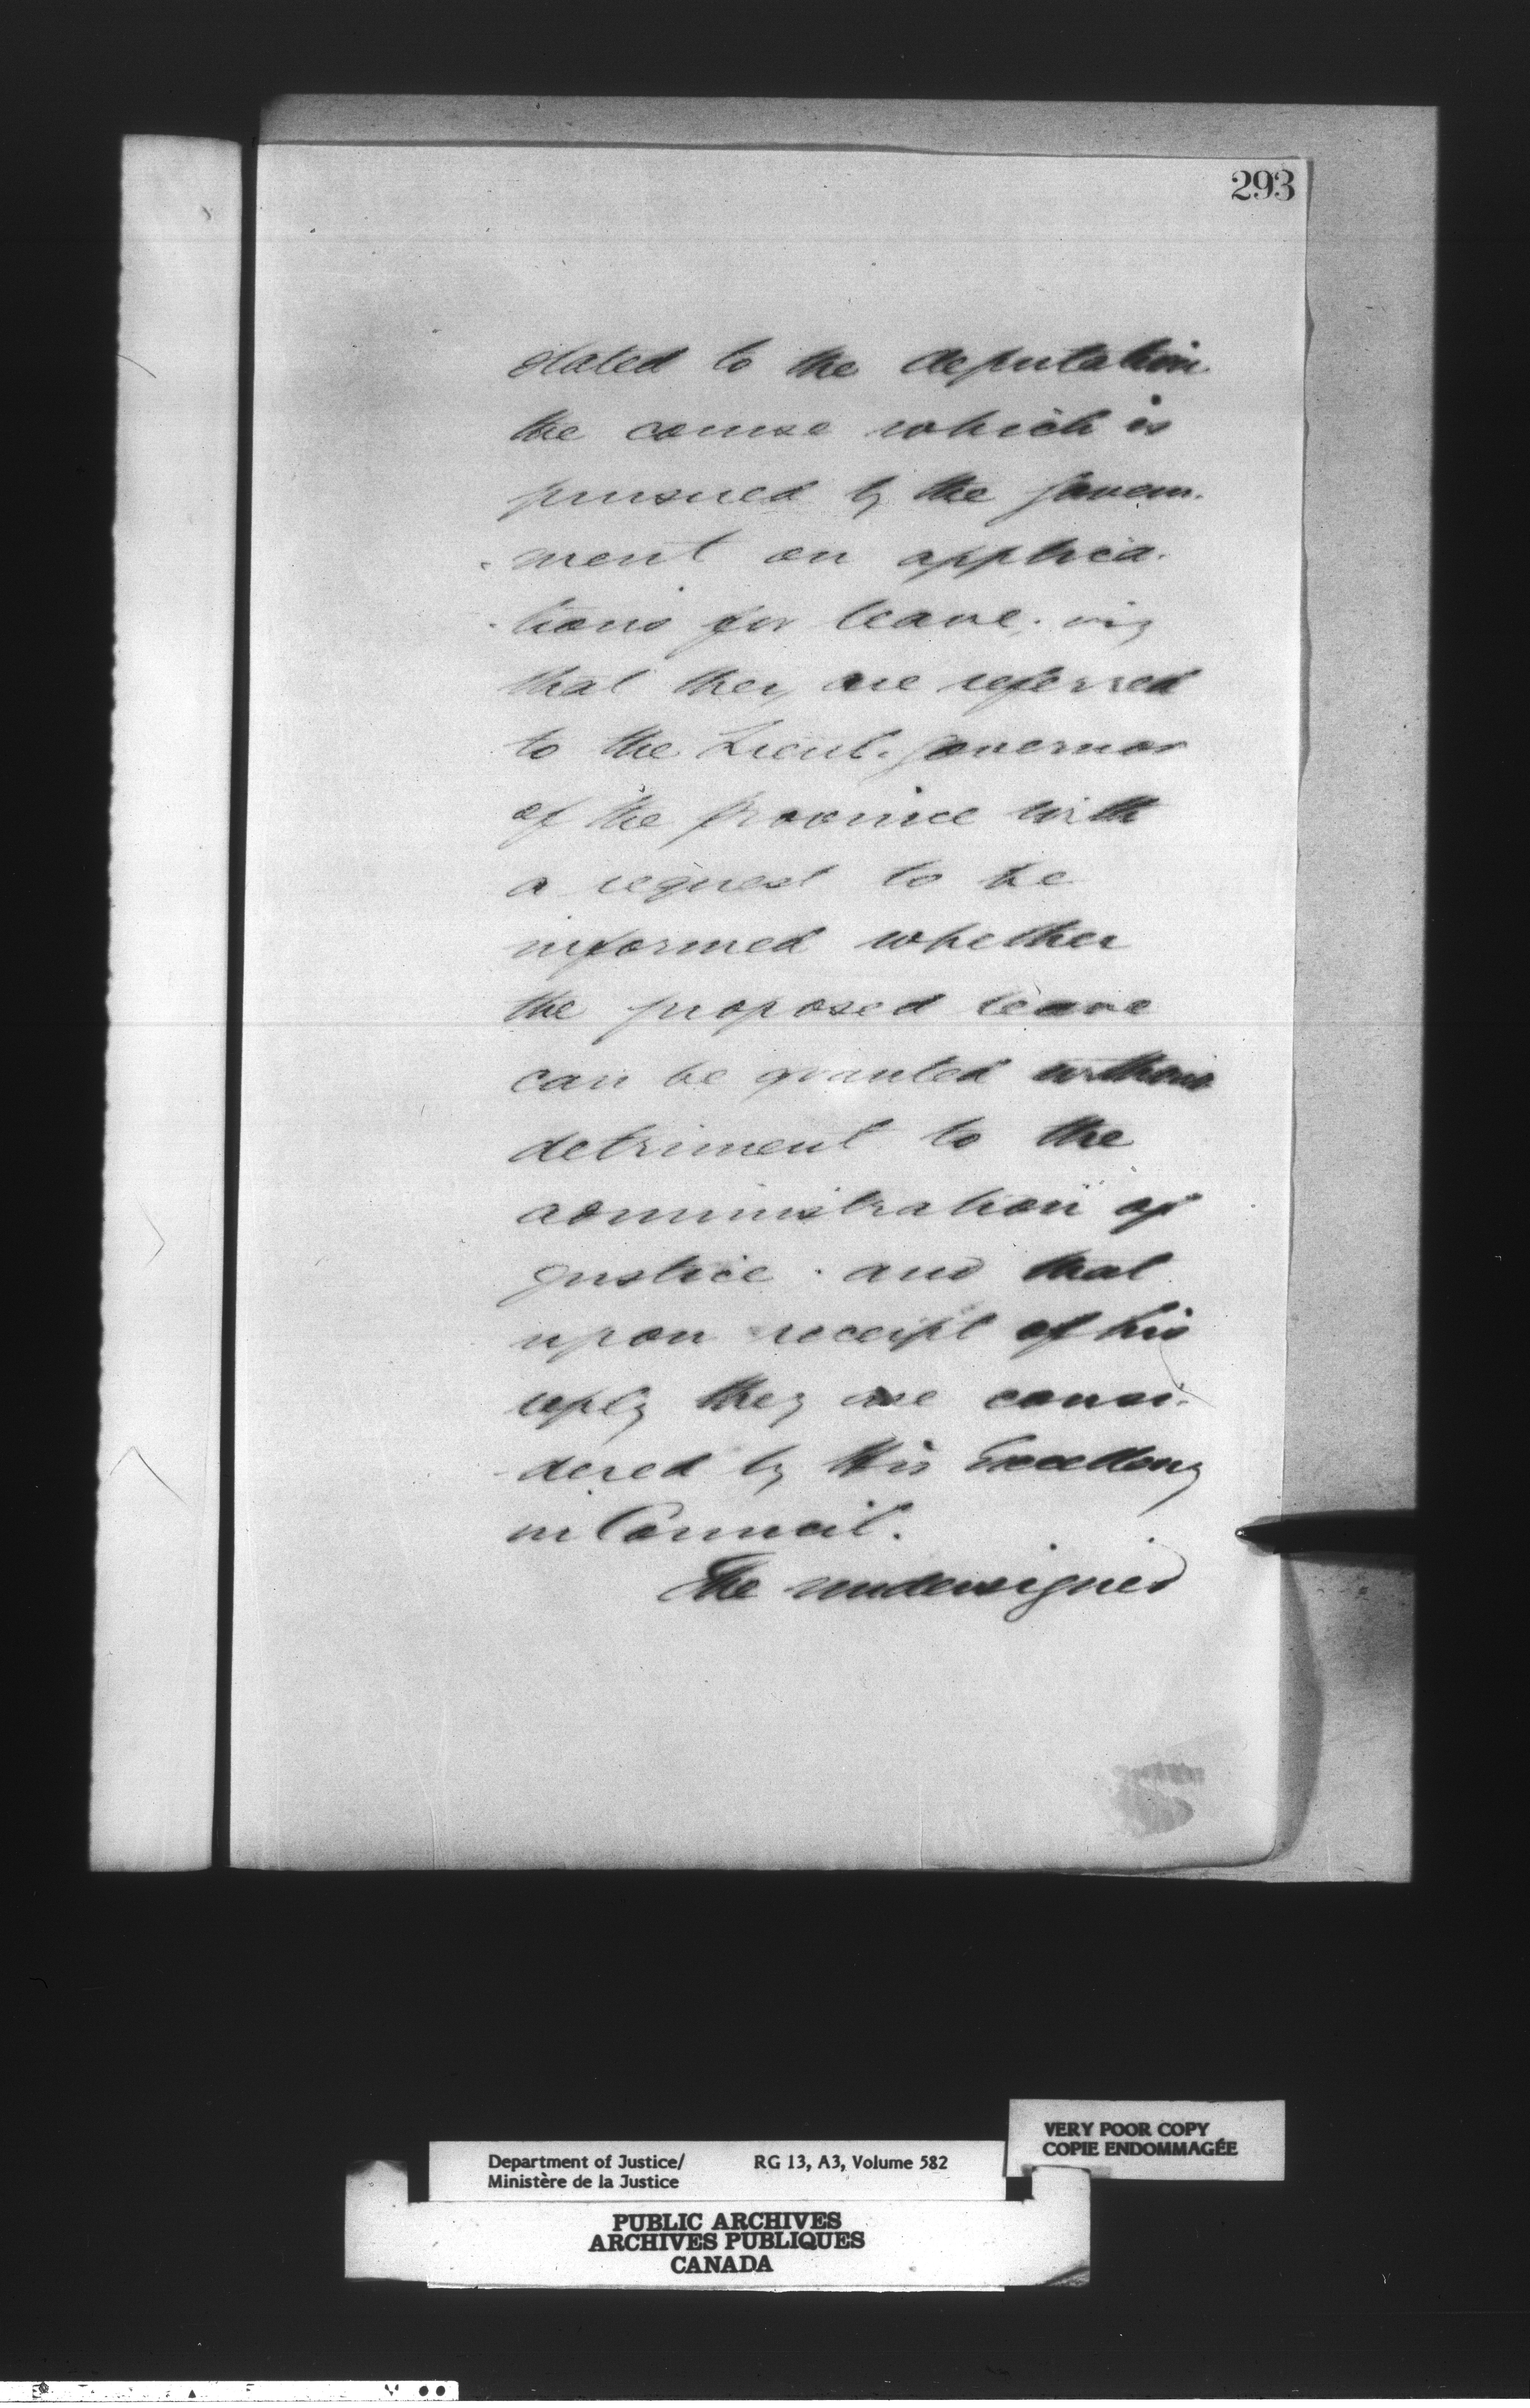 293
stated to the deputation
the course which is
pursued by the Govern-
-ment on applica-
-tions for leave, viz
that they are referred
to the Lieut. Governor
of the Province with
a request to be
informed whether
the proposed leave
can be granted without
detriment to the
administration of
justice. and that
upon receipt of his
reply they are consi-
-dered by His Excellency
in Council.
The undersigned
VERY POOR COPY
COPIE ENDOMMAGÉE
Department of Justice/ RG 13, A3, Volume 582
Ministère de la Justice
PUBLIC ARCHIVES
ARCHIVES PUBLIQUES
CANADA